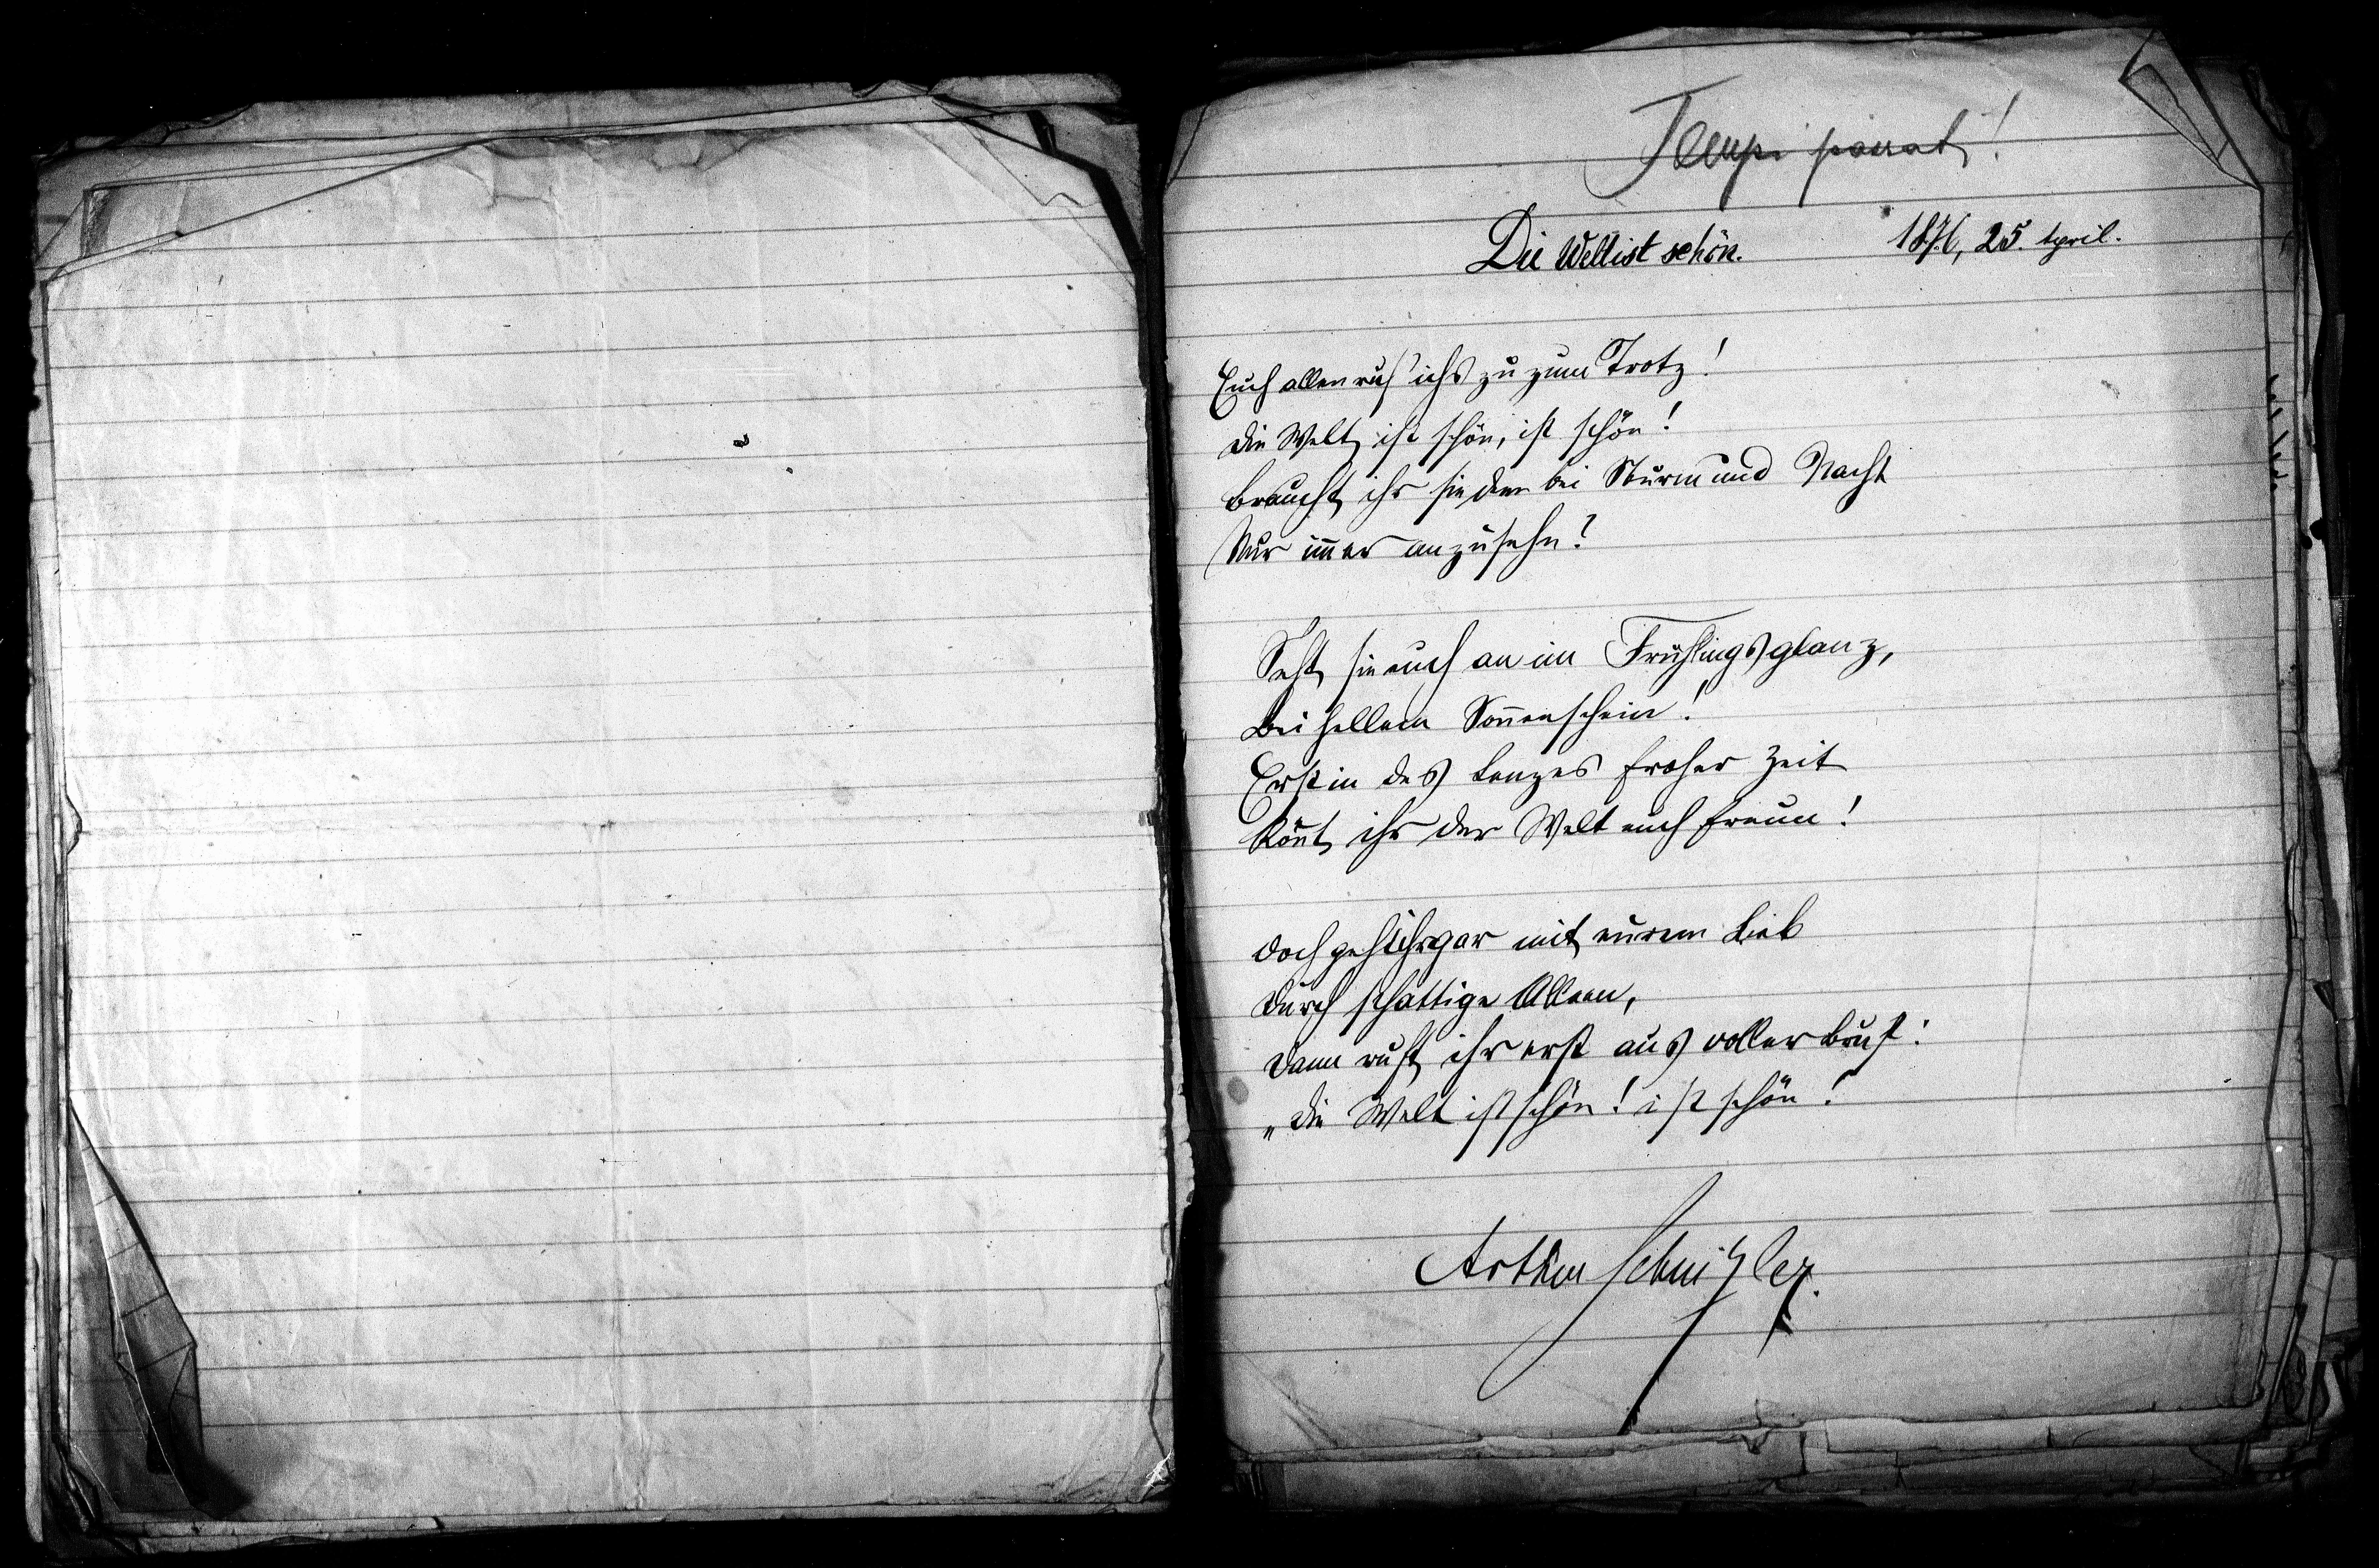 Tempi passati!
Die Welt ist schön. 1876, 25. April.
Euch allen ruf' ichs zu zum Trotz!
Die Welt ist schön, ist schön!
Braucht ihr sie denn bei Sturm und Nacht
Nur im̅er anzusehn?
Seht sie euch an im Frühlingsglanz,
Bei hellem Son̅enschein!
Erst in des Lenzes froher Zeit
Kön̅t ihr der Welt euch freun!
Doch geht ihr gar mit eurem Lieb
Durch schattige Alleen,
Dann ruft ihr erst aus voller Brust:
„Die Welt ist schön! ist schön!
Arthur Schnitzler.